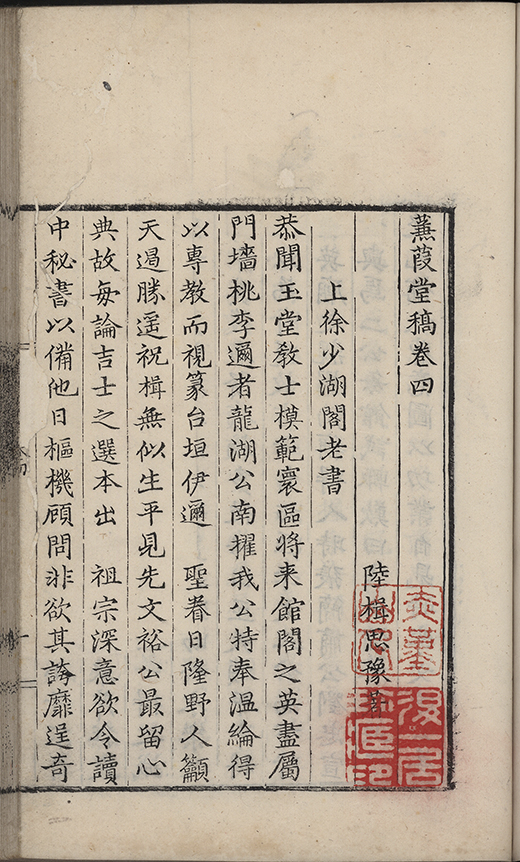 蒹葭堂稿卷四
陸楫思豫著
上徐少湖閣老書
恭聞玉堂敎士模範寰區將來館閣之英盡屬
門墻桃李邇者龍湖公南擢我公特奉溫綸得
以專教而視篆台垣伊邇 聖眷日隆野人籲
天遏勝遥祝楫無似生平見先文裕公最留心
典故每論吉士之選本出 祖宗深意欲令讀
中秘書以備他日樞機顧問非欲其誇靡逞奇